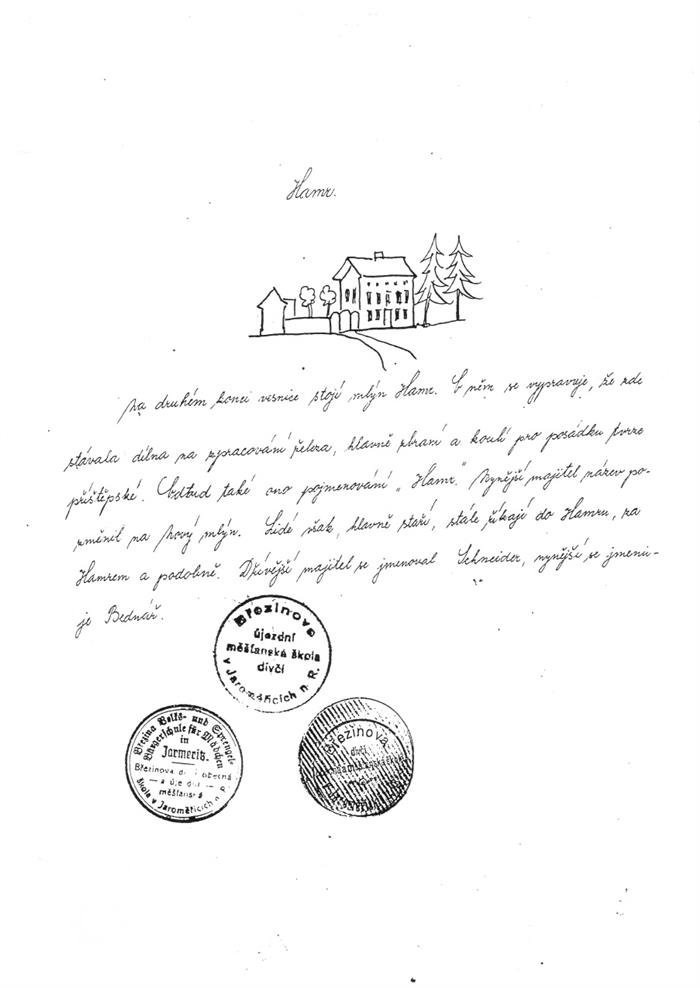 Hamr.
Na druhém konci vesnice stojí mlýn Hamr. O něm se vypravuje, že zde
stávala dílna na zpracování železa, hlavně zbraní a koulí pro posádku tvrze
příštěpské. Odtud také ono pojmenování „Hamr." Nynější majitel název po-
změnil na Nový mlýn. Lidé však, hlavně staří, stále říkají do Hamru, za
Hamrem a podobně. Dřívější majitel se jmenoval Schneider, nynější se jmenu-
je Bednář.
Březinova
újezdní
měšťanská škola
dívčí
v Jaroměřicích n. R.
Březina Volks- und Sprengel-
Bürgerschule für Mädchen
in
Jarmeritz.
Březinova obecná
a
měšťanská
škola v Jaroměřicích n. R.
Březinova
dívčí